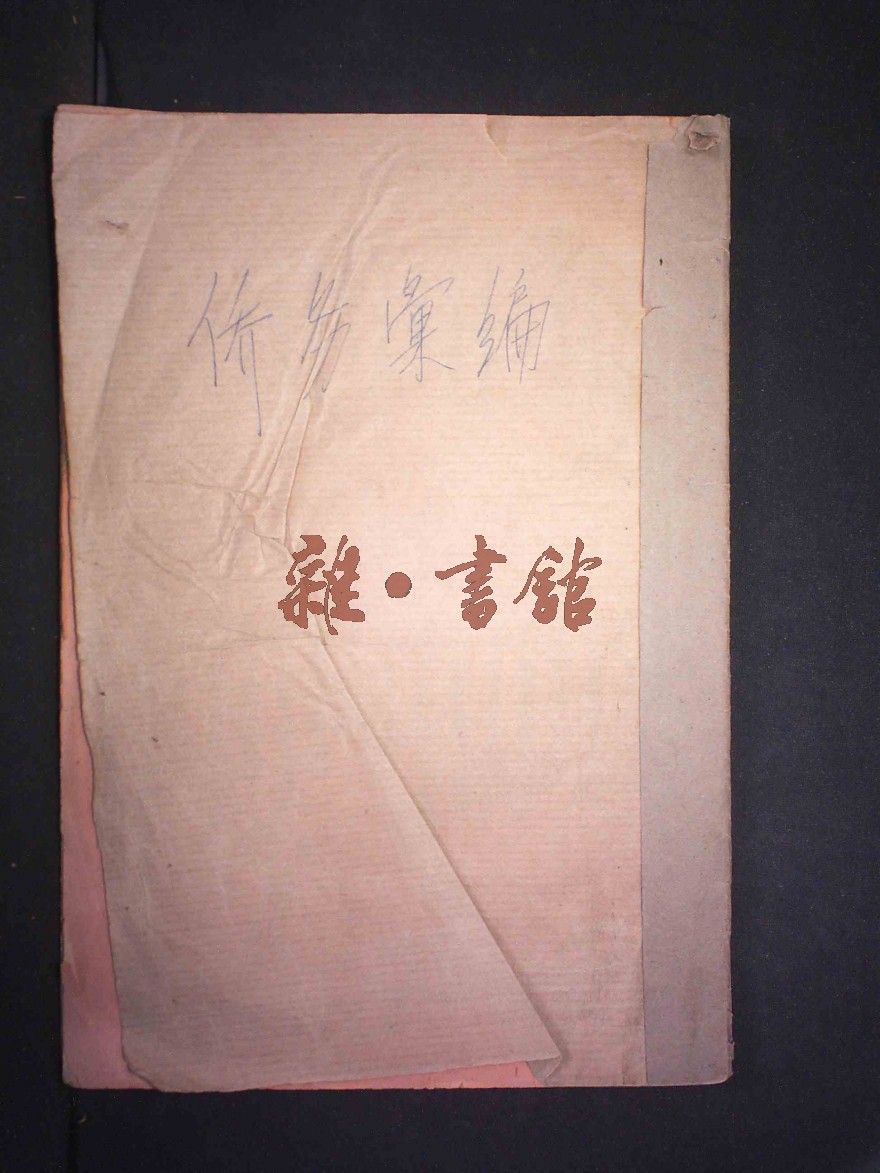 侨务彙编
雜·書館